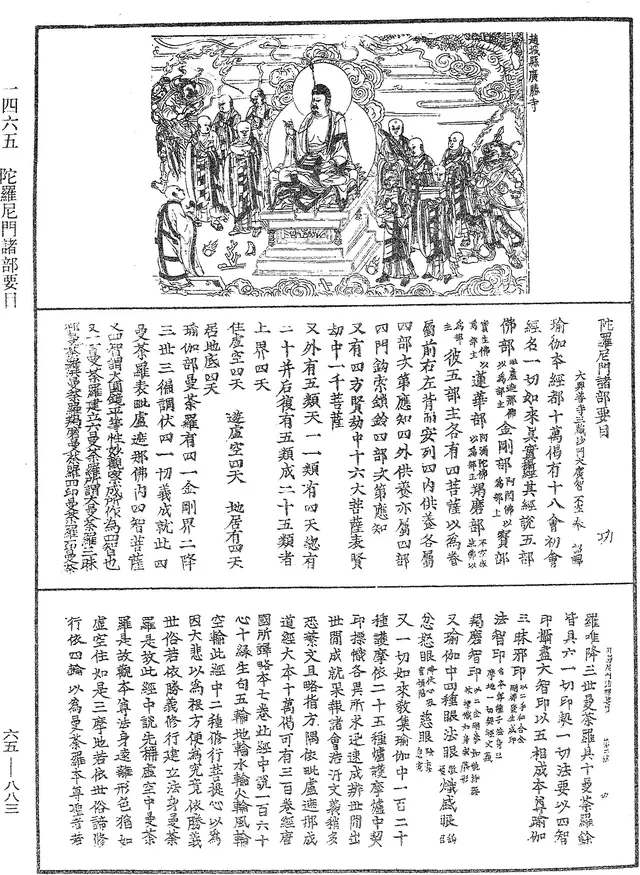 趙城縣廣勝寺
一四六五　陀羅尼門諸部要目
陀羅尼門諸部要目　功
大興善寺三藏沙門大廣智不空奉　詔譯
瑜伽本經都十萬偈有十八會初會
經名一切如來真實攝其經說五部
佛部毗盧遮那佛以為部主金剛部阿閦佛以為部主寶部
寶生佛以為部主蓮華部阿彌陀佛以為部主羯磨部不空成就佛以
為部主彼五部主各有四菩薩以為眷
屬前右左背而安列四內供養各屬
四部次第應知四外供養亦屬四部
四門鈎索鏁鈴四部次第應知
又有四方賢劫中十六大菩薩表賢
劫中一千菩薩
又外有五類天一一類有四天總有
二十并后復有五類成二十五類者
上界四天
住虛空四天　遊虛空四天　地居有四天
居地底四天
瑜伽部曼荼羅有四一金剛界二降
三世三徧調伏四一切義成就此四
曼荼羅表毗盧遮那佛內四智菩薩
又四智謂大圓鏡平等性妙觀察成所作為四智也
又一一曼荼羅建立六曼荼羅所謂大曼荼羅三昧
耶曼荼羅法曼荼羅羯磨曼荼羅四印曼荼羅一印曼荼
羅唯降三世曼荼羅具十曼荼羅餘
皆具六一切印契一切法要以四智
印攝盡大智印以五相成本尊瑜伽
三昧耶印以二手和合金剛縛發生成印
法智印
羯磨智印
又瑜伽中四種眼法眼熾盛眼
忿怒眼慈眼
又一切如來教集瑜伽中一百二十
種護摩依二十五種爐護摩爐中契
印標幟各異所求迅速成辦世間出
世間成就果報諸會浩汗文義稍多
恐繁文且略指方隅依毗盧遮那成
道經大本十萬偈可有三百卷經唐
國所譯略本七卷此經中說一百六十
心十緣生句五輪地輪水輪火輪風輪
空輪此經中二種修行菩提心以為
因大悲以為根方便為究竟依勝義
世俗若依勝義修行建立法身曼荼
羅是故此經中說先稱虛空中曼荼
羅是故觀本尊法身遠離形色猶如
虛空住如是三摩地若依世俗諦修
行依四輪以為曼荼羅本尊聖者若
六五—八八三